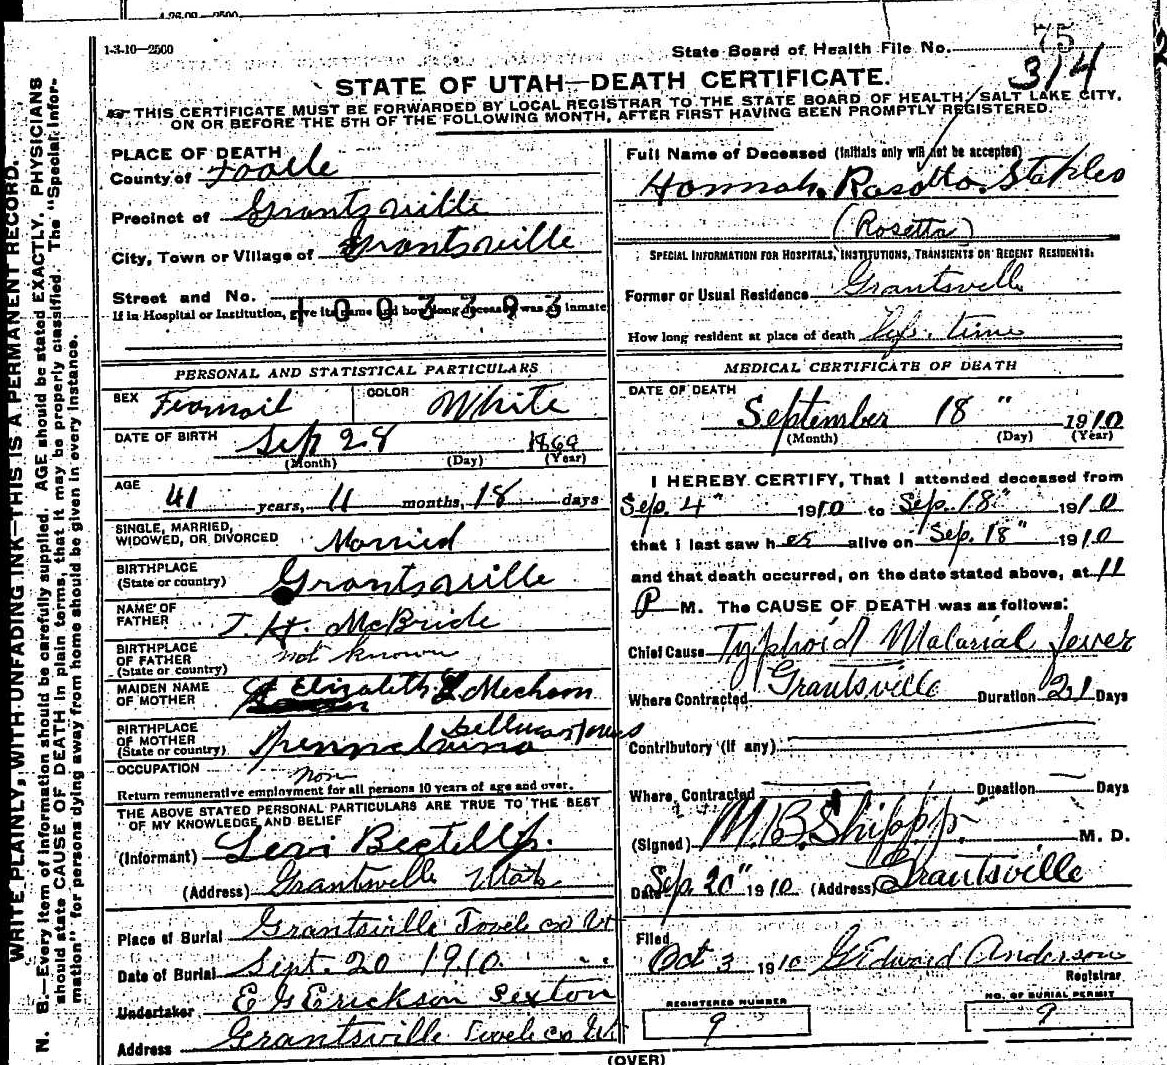 4-26-09—2500
1-3-10—2500
State Board of Health File No.
75
314
STATE OF UTAH—DEATH CERTIFICATE.
THIS CERTIFICATE MUST BE FORWARDED BY LOCAL REGISTRAR TO THE STATE BOARD OF HEALTH, SALT LAKE CITY,
ON OR BEFORE THE 5TH OF THE FOLLOWING MONTH, AFTER FIRST HAVING BEEN PROMPTLY REGISTERED.
WRITE PLAINLY, WITH UNFADING INK—THIS IS A PERMANENT RECORD.
N. B.—Every item of information should be carefully supplied. AGE should be stated EXACTLY. PHYSICIANS
should state CAUSE OF DEATH in plain terms, that it may be properly classified. The "Special Infor-
mation" for persons dying away from home should be given in every instance.
PLACE OF DEATH
County of Tooele
Precinct of Grantsville
City, Town or Village of Grantsville
Street and No.
1003393
If in Hospital or Institution, give its name and how long deceased was inmate
PERSONAL AND STATISTICAL PARTICULARS
SEX Feamail COLOR White
DATE OF BIRTH Sep 28 1869
(Month) (Day) (Year)
AGE 41 years, 11 months, 18 days
SINGLE, MARRIED,
WIDOWED, OR DIVORCED Married
BIRTHPLACE
(State or country) Grantsville
NAME OF
FATHER J. H. McBride
BIRTHPLACE
OF FATHER not known
(State or country)
MAIDEN NAME
OF MOTHER Elizabeth Mecham
BIRTHPLACE
OF MOTHER
(State or country)
OCCUPATION non
Return remunerative employment for all persons 10 years of age and over.
THE ABOVE STATED PERSONAL PARTICULARS ARE TRUE TO THE BEST
OF MY KNOWLEDGE AND BELIEF
(Informant) Levi
(Address) Grantsville Utah
Place of Burial Grantsville Tooele co Ut
Date of Burial Sept. 20 1910
Undertaker E G Erickson Sexton
Address Grantsville Tooele co Ut
Full Name of Deceased (Initials only will not be accepted)
Hannah Rosetta Staples
(Rosetta)
SPECIAL INFORMATION FOR HOSPITALS, INSTITUTIONS, TRANSIENTS OR RECENT RESIDENTS:
Former or Usual Residence Grantsville
How long resident at place of death Life. time
MEDICAL CERTIFICATE OF DEATH
DATE OF DEATH
September 18" 1910
(Month) (Day) (Year)
I HEREBY CERTIFY, That I attended deceased from
Sep. 4" 1910 to Sep. 18" 1910
that I last saw her alive on Sep. 18" 1910
and that death occurred, on the date stated above, at 11
P M. The CAUSE OF DEATH was as follows:
Chief Cause Typhoid Malarial fever
Where Contracted Grantsville Duration 21 Days
Contributory (if any)
Where Contracted Duration Days
(Signed) M. B. Shipp M. D.
Date Sep. 20" 1910 (Address) Grantsville
Filed
Oct 3 1910 G Edward Anderson
Registrar
REGISTERED NUMBER
9
NO. OF BURIAL PERMIT
9
(OVER)